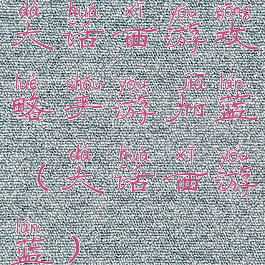 dà huà xī yóu gōng
大话西游攻
lüè shǒu yóu jiā lán
略手游加蓝
dà huà xī yóu
（大话西游
lán
蓝）